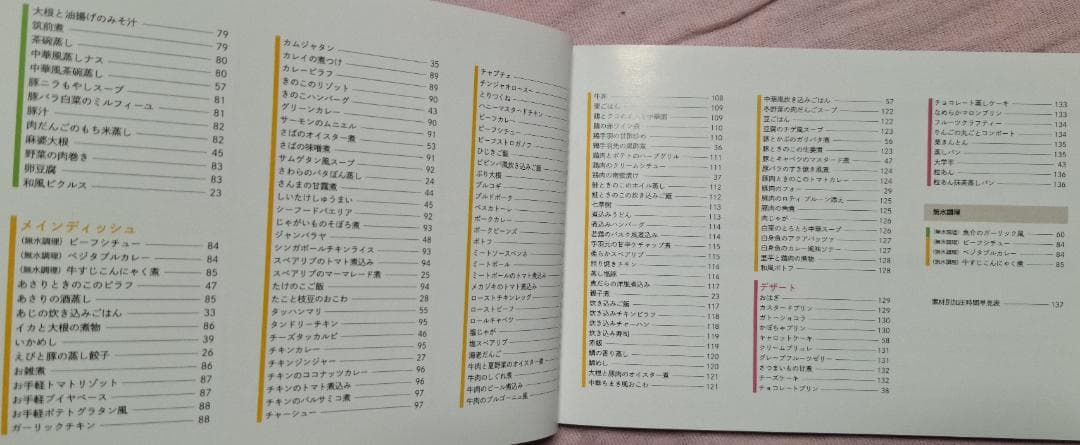 大根と油揚げのみそ汁 79
筑前煮 79
茶碗蒸し 80
中華風蒸しナス 80
中華風茶碗蒸し 57
豚ニラもやしスープ 81
豚バラ白菜のミルフィーユ 81
豚汁 82
肉だんごのもち米蒸し 82
麻婆大根 45
野菜の肉巻き 83
卵豆腐 83
和風ピクルス 23
メインディッシュ
(無水調理) ビーフシチュー 84
(無水調理) ベジタブルカレー 84
(無水調理) 牛すじこんにゃく煮 85
あさりときのこのピラフ 47
あさりの酒蒸し 85
あじの炊き込みごはん 33
イカと大根の煮物 86
いかめし 39
えびと豚の蒸し餃子 26
お雑煮 86
お手軽トマトリゾット 87
お手軽ブイヤベース 87
お手軽ポテトグラタン風 88
ガーリックチキン 88
カムジャタン 35
カレイの煮つけ 89
カレーピラフ 89
きのこのリゾット 90
きのこハンバーグ 90
グリーンカレー 43
サーモンのムニエル 91
さばのオイスター煮 53
さばの味噌煮 91
サムゲタン風スープ 92
さわらのバタぽん蒸し 24
さんまの甘露煮 44
しいたけしゅうまい 45
シーフードパエリア 92
じゃがいものそぼろ煮 93
ジャンバラヤ 48
シンガポールチキンライス 93
スペアリブのトマト煮込み 94
スペアリブのマーマレード煮 25
たけのこご飯 94
たこと枝豆のおこわ 28
タッハンマリ 55
タンドリーチキン 95
チーズタッカルビ 46
チキンカレー 95
チキンジンジャー 27
チキンのココナッツカレー 96
チキンのトマト煮込み 96
チキンのバルサミコ煮 97
チャーシュー 97
チャプチェ
チンジャオロース
とりつくね
ハニーマスタードチキン
ビーフカレー
ビーフシチュー
ビーフストロガノフ
ひじきご飯
ビビンバ風炊き込みご飯
ぶり大根
プルコギ
プルドポーク
ペスカトーレ
ポークカレー
ポークビーンズ
ポトフ
ミートソースペンネ
ミートボール
ミートボールのトマト煮込み
メカジキのトマト煮込み
ローストチキンレッグ
ローストビーフ
ロールキャベツ
塩じゃが
塩スペアリブ
海老だんご
牛肉と夏野菜のオイスター煮
牛肉のしぐれ煮
牛肉のビール煮込み
牛肉のブルゴーニュ風
牛丼 108
栗ごはん 109
109
鶏の赤ワイン煮 109
鶏手羽の甘酢炒め 110
36
鶏肉とポテトのハーブグリル 111
鶏肉のクリームシチュー 111
鶏肉の南蛮漬け 37
鮭ときのこのホイル蒸し 112
鮭ときのこの炊き込みご飯 112
七草粥 113
煮込みうどん 113
煮込みハンバーグ 114
若鶏のバスク風煮込み 114
手羽元の甘辛ケチャップ煮 115
柔らかスペアリブ 115
照り焼きチキン 116
蒸し塩豚 116
煮だらの洋風煮込み 117
親子煮 23
炊き込みご飯 117
炊き込みチキンピラフ 118
炊き込みチャーハン 118
炊き込み寿司 119
赤飯 119
鯛の香り蒸し 120
鯛めし 120
大根と豚肉のオイスター煮 121
中華ちまき風おこわ 121
中華風炊き込みごはん 57
冬野菜の肉だんごスープ 122
豆ごはん 122
豆腐のチゲ風スープ 123
豚とかぶのガリバタ煮 123
豚ときのこの生姜煮 123
豚とキャベツのマスタード煮 24
豚バラのすき焼き風煮 47
豚肉ときのこのトマトカレー 124
豚肉のフォー 29
豚肉のロティ プルーン添え 125
豚肉の角煮 125
肉じゃが 126
白菜のとろとろ中華スープ 126
白身魚のアクアパッツァ 127
白身魚のカレー風味ソテー 127
里芋と鶏肉の煮物 128
和風ポトフ 128
デザート
おはぎ 129
カスタードプリン 129
ガトーショコラ 130
かぼちゃプリン 130
キャロットケーキ 58
クリームブリュレ 131
グレープフルーツゼリー 131
さつまいもの甘煮 132
チーズケーキ 132
チョコレートプリン 38
チョコレート蒸しケーキ 133
なめらかマロンプリン 133
フルーツクラフティー 134
りんごの丸ごとコンポート 134
栗きんとん 135
蒸しパン 135
大学芋 136
粒あん 136
粒あん抹茶蒸しパン 136
無水調理
(無水調理) 魚介のガーリック風 60
(無水調理) ビーフシチュー 84
(無水調理) ベジタブルカレー 84
(無水調理) 牛すじこんにゃく煮 85
素材別加圧時間早見表 137